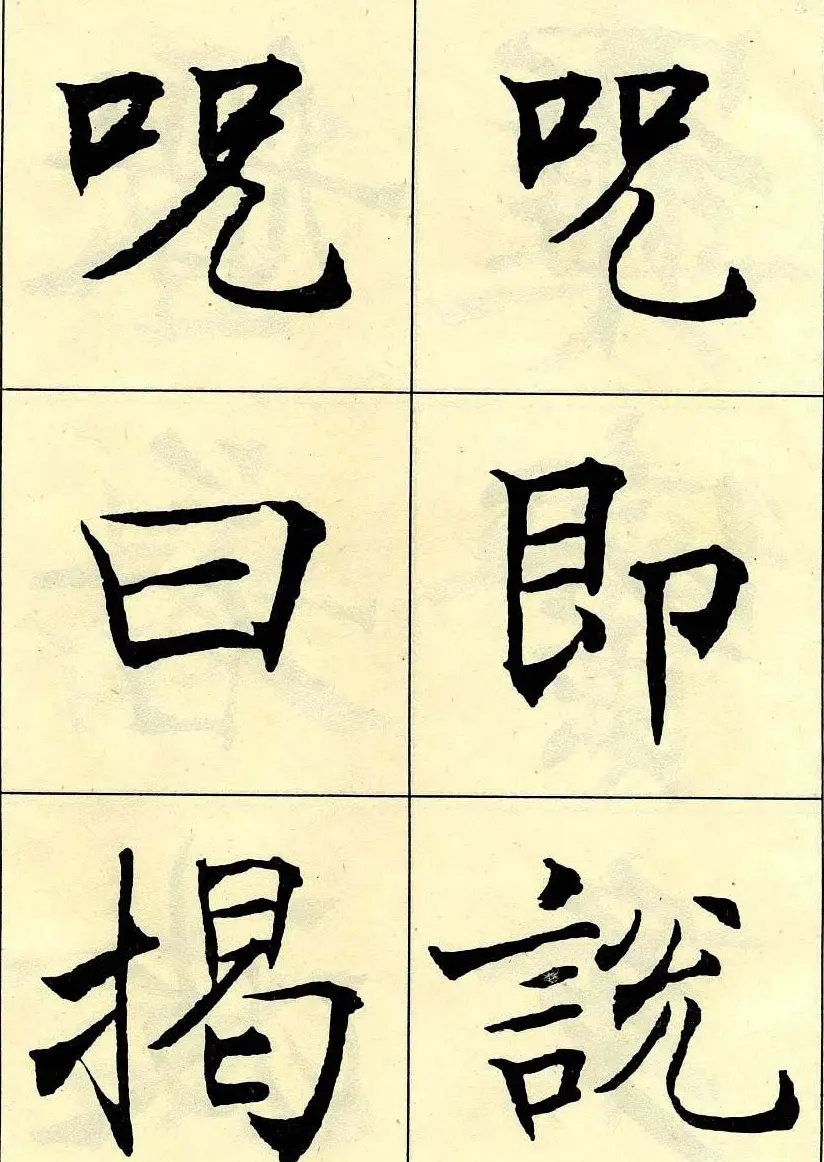 咒即說
咒曰揭